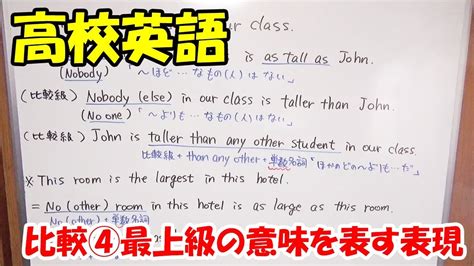 高校英語
our class.
is as tall as John.
(Nobody) 「～ほど…なもの(人)はない」
(比較級) Nobody (else) in our class is taller than John.
(No one) 「～よりも…なもの(人)はない」
(比較級) John is taller than any other student in our class.
比較級+than any other+単数名詞「ほかのどの～よりも…だ」
※ This room is the largest in this hotel.
= No (other) room in this hotel is as large as this room
No (other)+単数名詞
比較④最上級の意味を表す表現